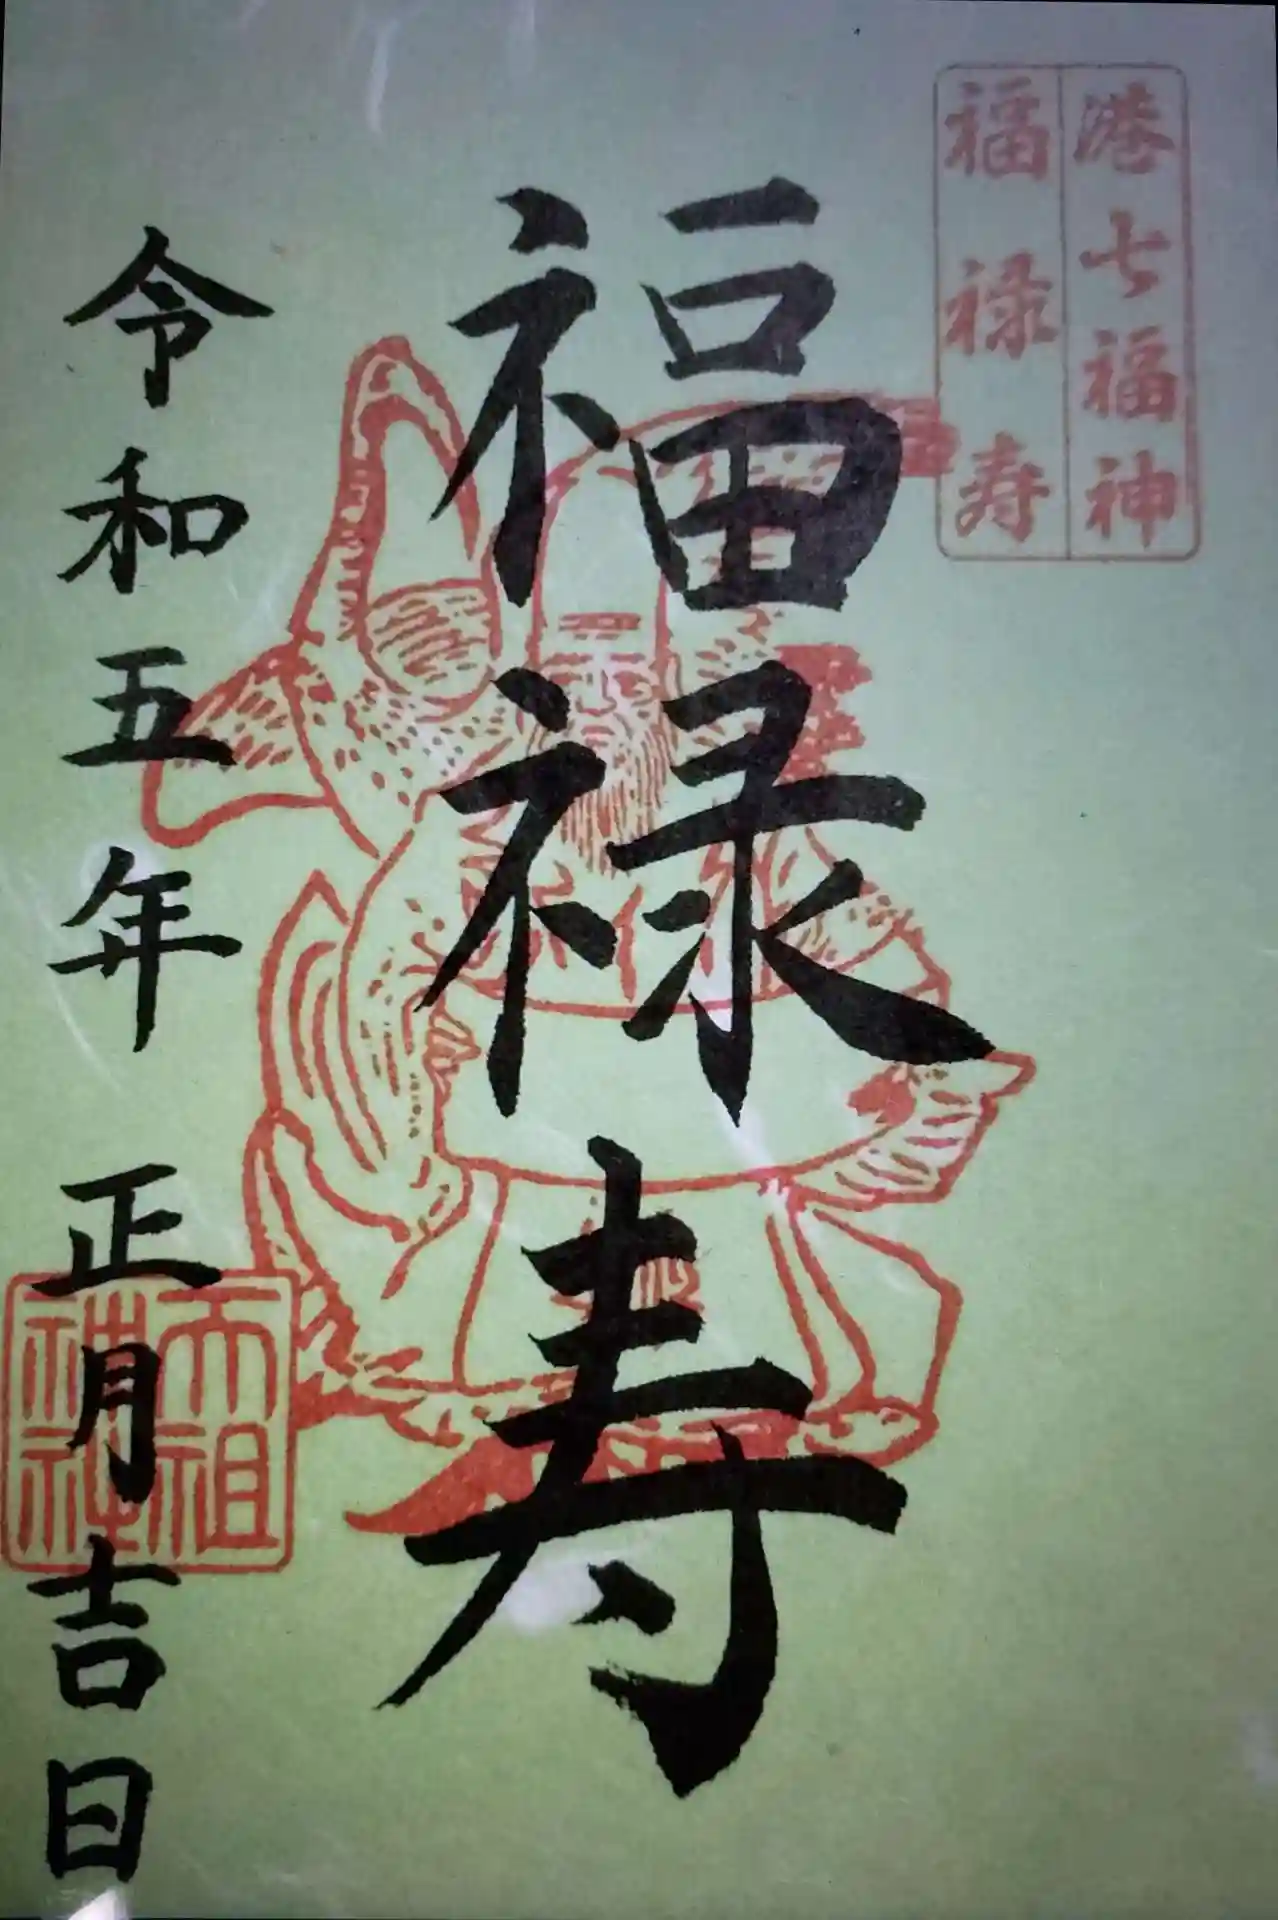 港七福神
福禄寿
福禄寿
令和五年正月吉日
天祖神社